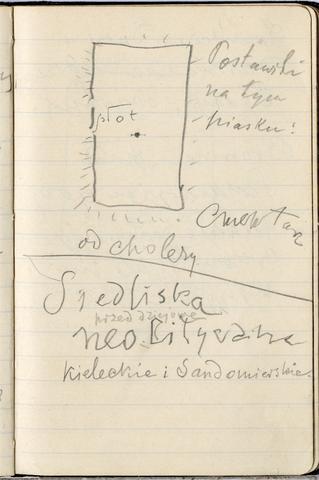 płot
Postawili
na tym
piasku:
Cmentarz
od cholery
Siedliska
przed dziejowe
neolityczne
Kieleckie i Sandomierskie.